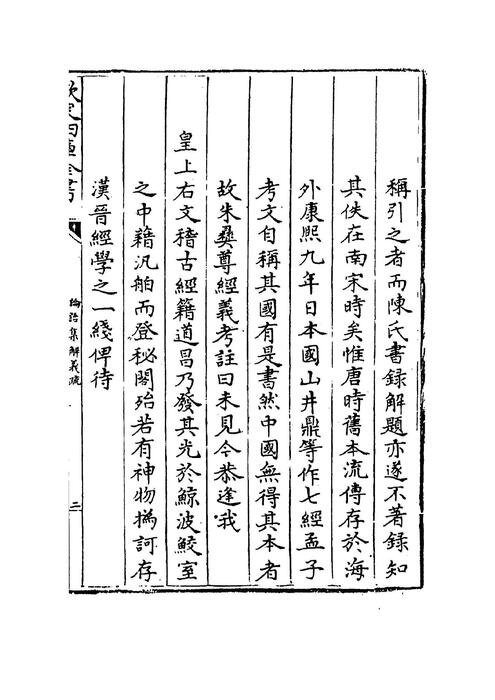 稱引之者而陳氏書録解題亦遂不著録知
其佚在南宋時矣惟唐時舊本流傳存於海
外康熙九年日本國山井鼎等作七經孟子
考文自稱其國有是書然中國無得其本者
故朱彝尊經義考註曰未見今恭逢我
皇上右文稽古經籍道昌乃發其光於鯨波鮫室
之中藉汎舶而登秘閣殆若有神物撝訶存
漢晉經學之一綫俾待
欽定四庫全書
論語集解義疏
二